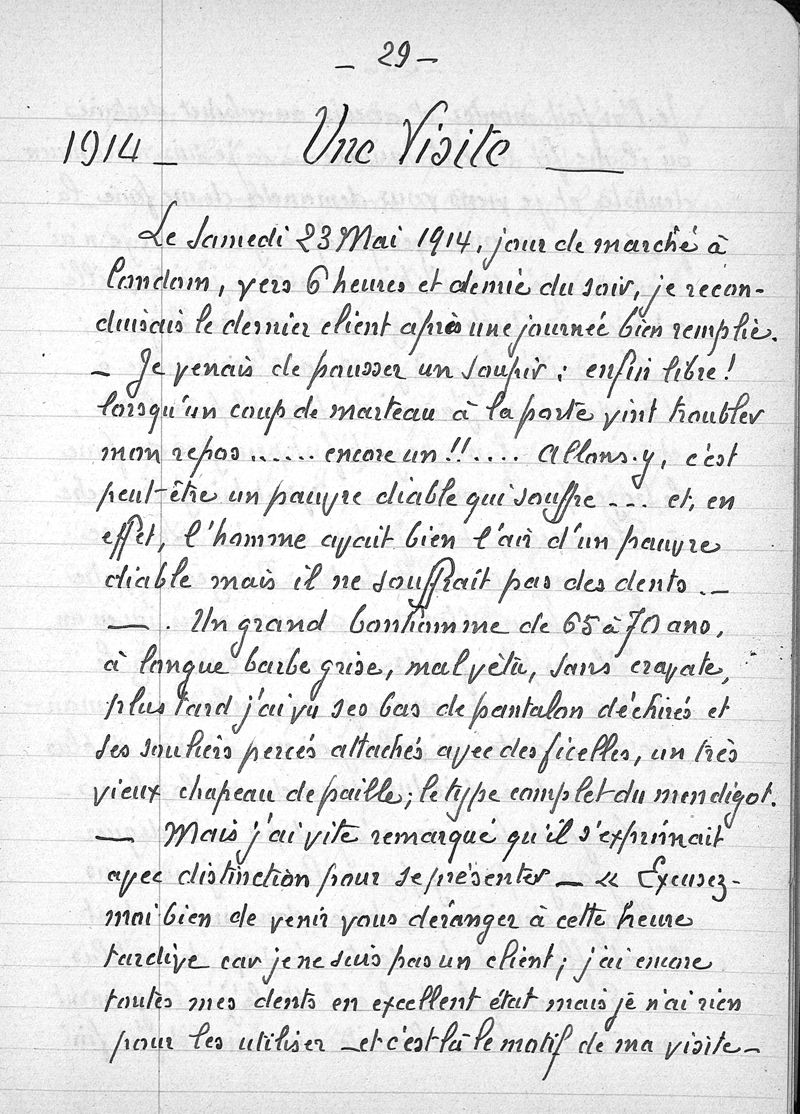 – 29 –
1914 – Une Visite –
Le Samedi 23 Mai 1914, jour de marché à
Condom, vers 6 heures et demie du soir, je recon-
duisais le dernier client après une journée bien remplie.
– Je venais de pousser un soupir : enfin libre !
lorsqu'un coup de marteau à la porte vint troubler
mon repos ...... encore un !! .... Allons-y, c'est
peut-être un pauvre diable qui souffre ... et, en
effet, l'homme avait bien l'air d'un pauvre
diable mais il ne souffrait pas des dents. –
– . Un grand bonhomme de 65 à 70 ans,
à longue barbe grise, mal vêtu, sans cravate,
plus tard j'ai vu ses bas de pantalon déchirés et
ses souliers percés attachés avec des ficelles, un très
vieux chapeau de paille ; le type complet du mendigot.
– Mais j'ai vite remarqué qu'il s'exprimait
avec distinction pour se présenter – « Excusez-
moi bien de venir vous déranger à cette heure
tardive car je ne suis pas un client ; j'ai encore
toutes mes dents en excellent état mais je n'ai rien
pour les utiliser – et c'est là le motif de ma visite –